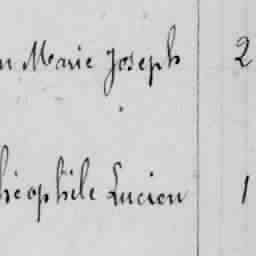 n Marie Joseph 2
héophile Lucien 1